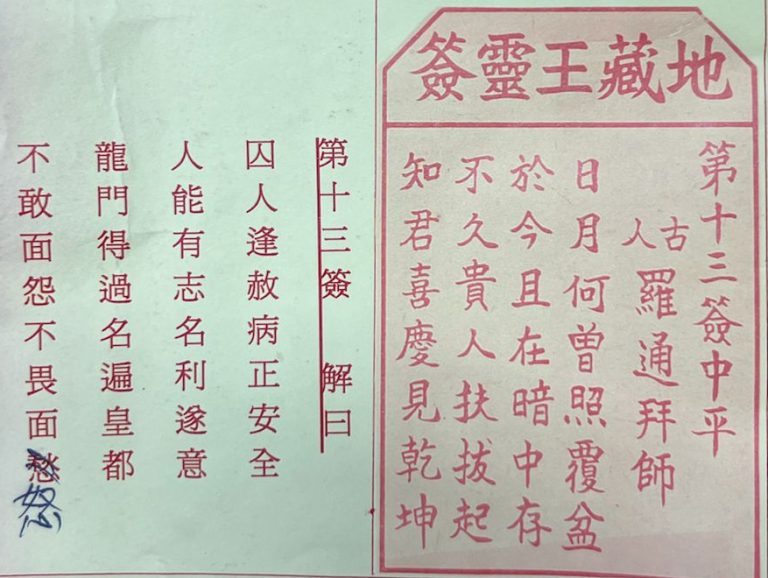 地藏王靈簽
第十三簽中平
古人 羅通拜師
日月何曾照覆盆
於今且在暗中存
不久貴人扶拔起
知君喜慶見乾坤
第十三簽 解曰
囚人逢赦病正安全
人能有志名利遂意
龍門得過名遍皇都
不敢面怨不畏面愁
怒